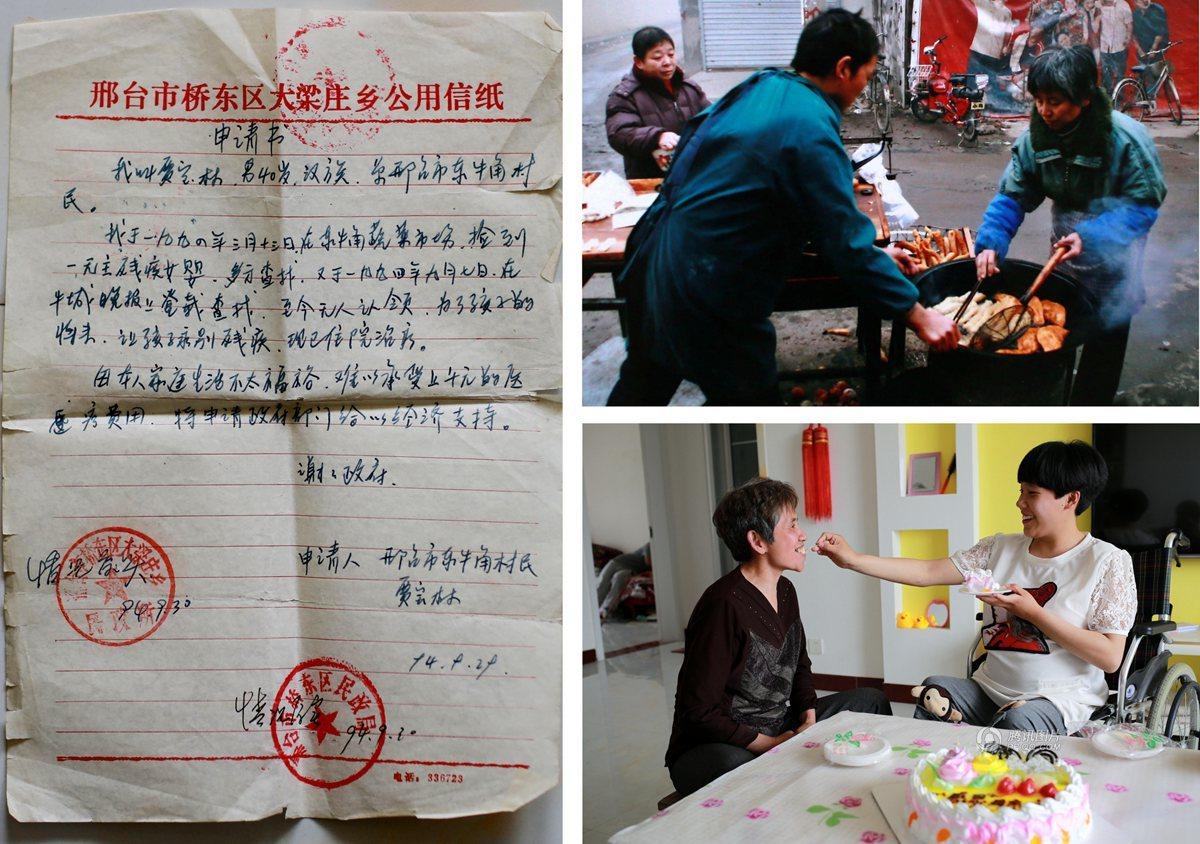 邢台市桥东区大梁庄乡公用信纸
申请书
我叫贾宝林,男40岁,汉族,系邢台市东牛角村
民。
我于一九九四年三月十三日,在东牛角蔬菜市场,捡到
一无主残疾女婴,多方查找,又于一九九四年九月七日,在
牛城晚报上登载查找,至今无人认领,为了孩子的
将来,让孩子告别残疾,现已住院治疗。
因本人家庭生活不太福裕,难以承受上千元的医
疗费用,特申请政府部门给以经济支持。
谢谢政府.
申请人 邢台市东牛角村民
贾宝林
94.9.29.
情况属实
94.9.30
桥东区大梁庄乡
民政所
情况属实
94.9.30
邢台市桥东区民政局
电话:336723
腾讯图片